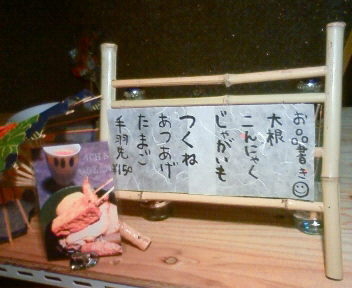 お品書き
大根
こんにゃく
じゃがいも
つくね
あつあげ
たまご
手羽先 ¥150